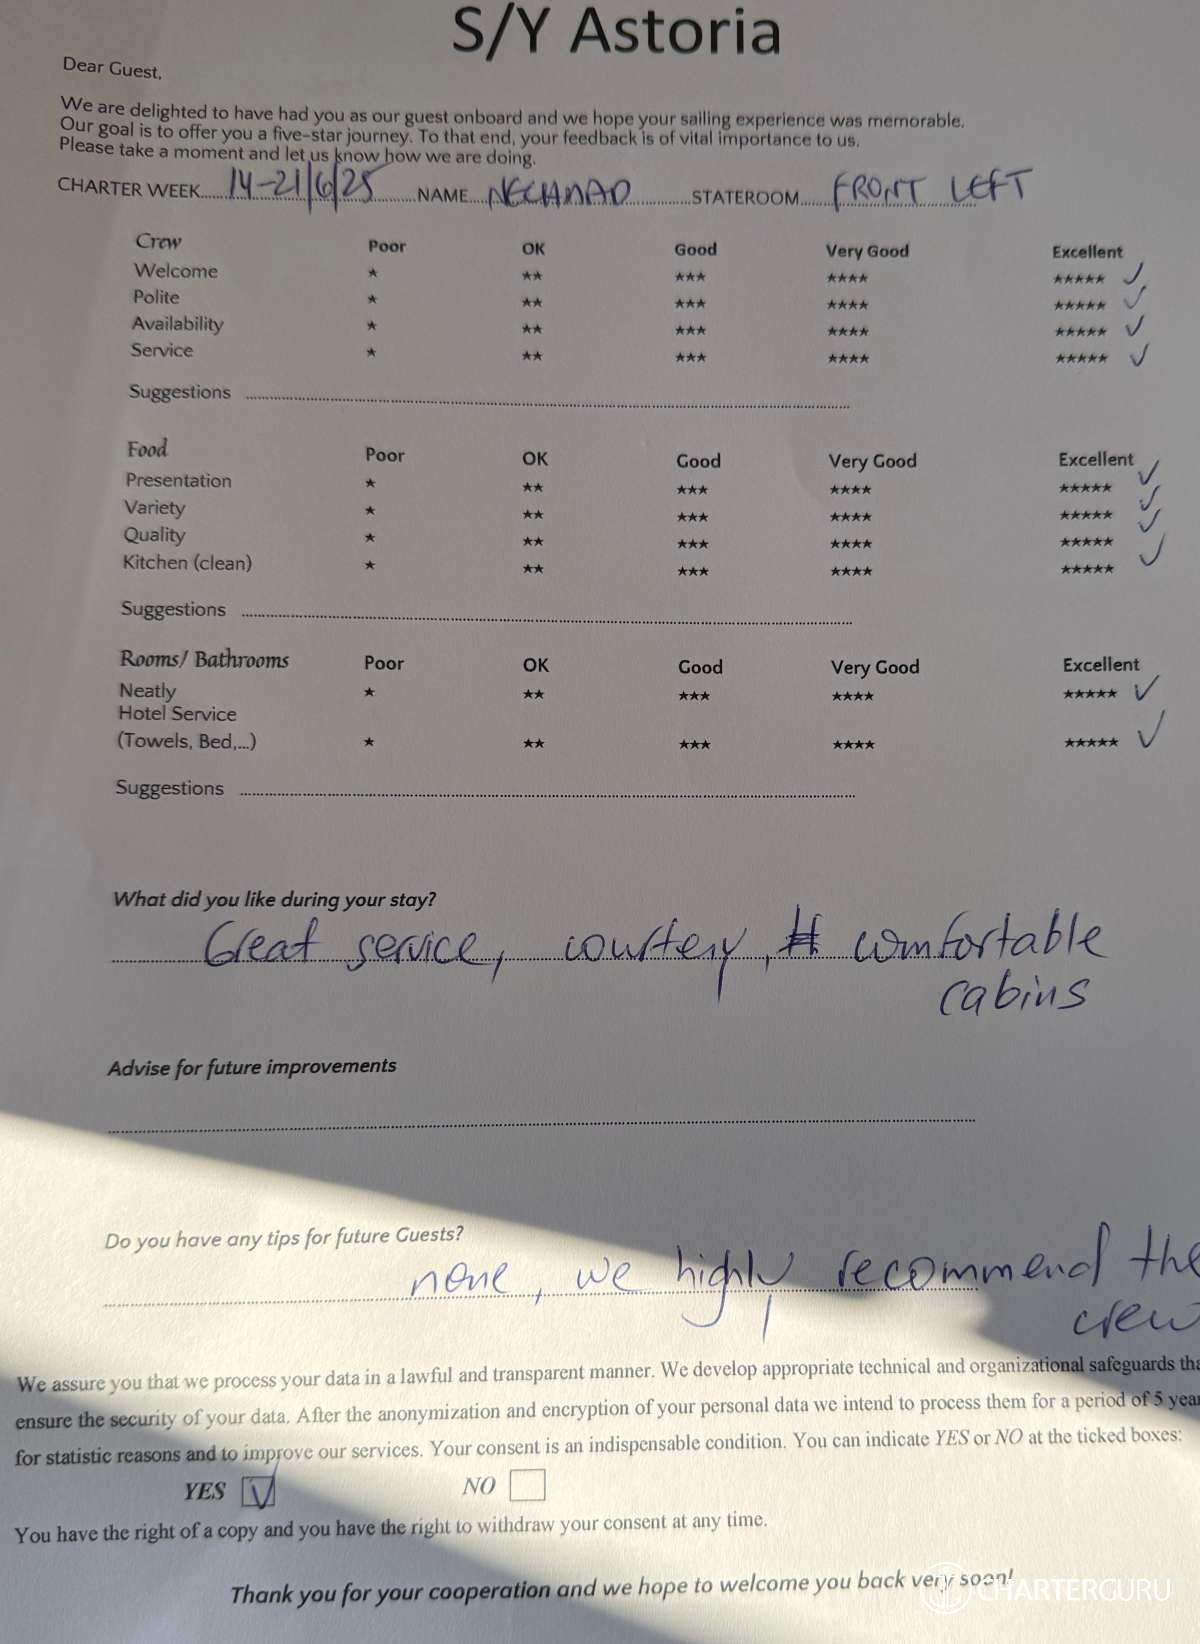 S/Y Astoria
Dear Guest,
We are delighted to have had you as our guest onboard and we hope your sailing experience was memorable.
Our goal is to offer you a five-star journey. To that end, your feedback is of vital importance to us.
Please take a moment and let us know how we are doing.
CHARTER WEEK......14-21/6/25.......NAME....NECHMAD...............STATEROOM.......FRONT LEFT
Crew Poor OK Good Very Good Excellent
Welcome ★ ★★ ★★★ ★★★★ ★★★★★ ✓
Polite ★ ★★ ★★★ ★★★★ ★★★★★ ✓
Availability ★ ★★ ★★★ ★★★★ ★★★★★ ✓
Service ★ ★★ ★★★ ★★★★ ★★★★★ ✓
Suggestions
Food Poor OK Good Very Good Excellent
Presentation ★ ★★ ★★★ ★★★★ ★★★★★ ✓
Variety ★ ★★ ★★★ ★★★★ ★★★★★ ✓
Quality ★ ★★ ★★★ ★★★★ ★★★★★ ✓
Kitchen (clean) ★ ★★ ★★★ ★★★★ ★★★★★ ✓
Suggestions
Rooms/ Bathrooms Poor OK Good Very Good Excellent
Neatly ★ ★★ ★★★ ★★★★ ★★★★★ ✓
Hotel Service
(Towels, Bed,...) ★ ★★ ★★★ ★★★★ ★★★★★ ✓
Suggestions
What did you like during your stay?
Great service, courtesy, comfortable
cabins
Advise for future improvements
Do you have any tips for future Guests?
none, we highly recommend the
crew
We assure you that we process your data in a lawful and transparent manner. We develop appropriate technical and organizational safeguards tha
ensure the security of your data. After the anonymization and encryption of your personal data we intend to process them for a period of 5 year
for statistic reasons and to improve our services. Your consent is an indispensable condition. You can indicate YES or NO at the ticked boxes:
YES ✓ NO
You have the right of a copy and you have the right to withdraw your consent at any time.
Thank you for your cooperation and we hope to welcome you back very soon!
CHARTERGURU